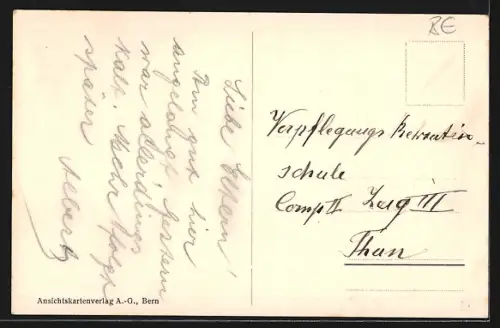 BE
Liebe Eltern!
Bin gut hier
angelangt Gestern
war allerdings
kalt. Mehr folgt
später Albert
Verpflegungs Rekrutin-
schule
Comp II Zug III
Thun
Ansichtskartenverlag A.-G., Bern